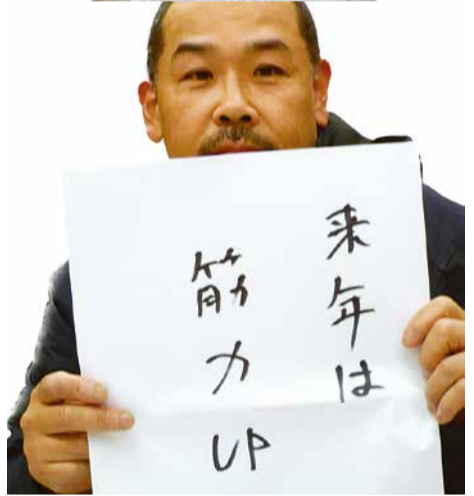 来年は
筋力UP